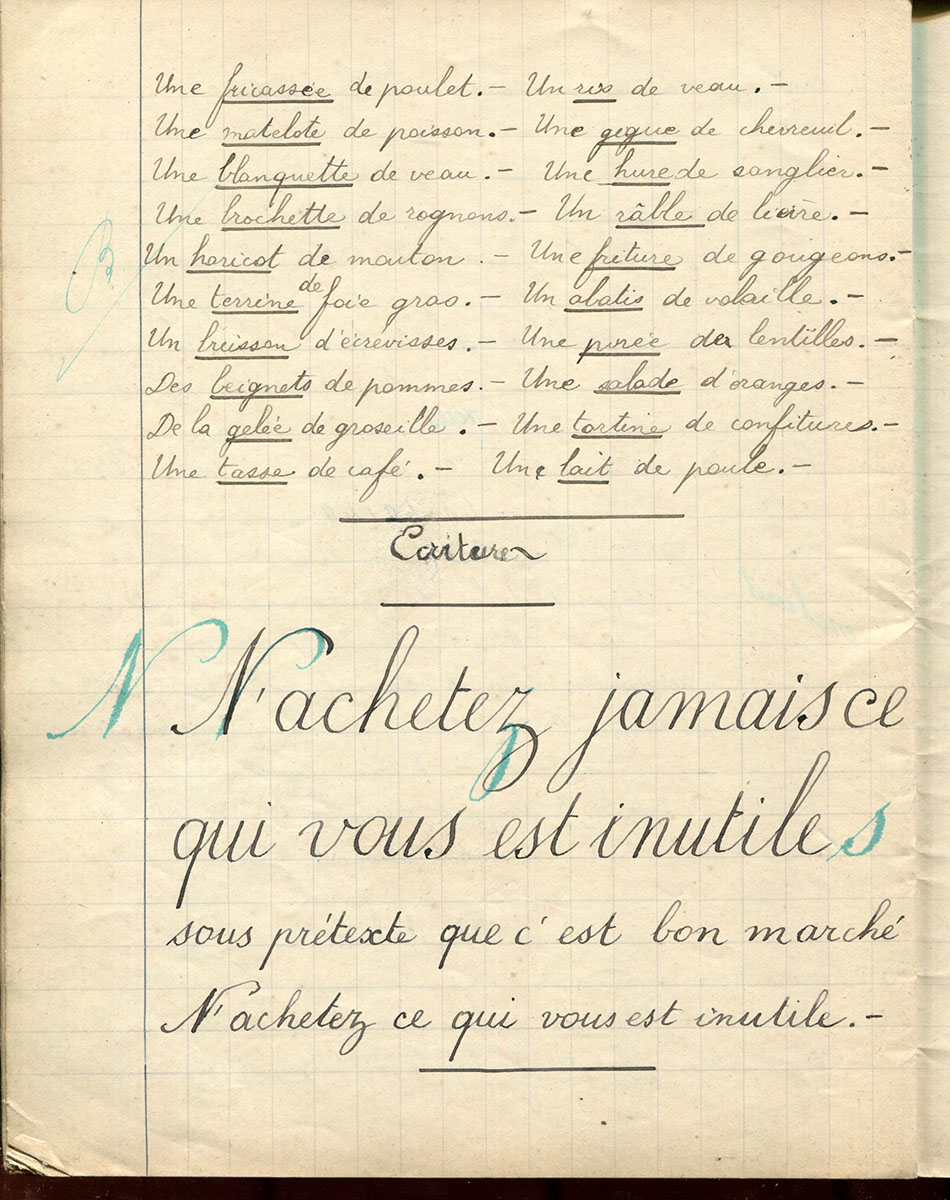 Une fricassée de poulet. – Un ris de veau. –
Une matelote de poisson. – Une gigue de chevreuil. –
Une blanquette de veau. – Une hure de sanglier. –
Une brochette de rognons. – Un râble de lièvre. –
Un haricot de mouton. – Une friture de goujeons. –
Une terrine de foie gras. – Un abatis de volaille. –
Un buisson d'écrevisses. – Une purée de lentilles. –
Des beignets de pommes. – Une salade d'oranges. –
De la gelée de groseille. – Une tartine de confitures. –
Une tasse de café. – Une lait de poule. –
Ecriture
N N'achetez jamais ce
qui vous est inutile s
sous prétexte que c'est bon marché
N'achetez ce qui vous est inutile. –